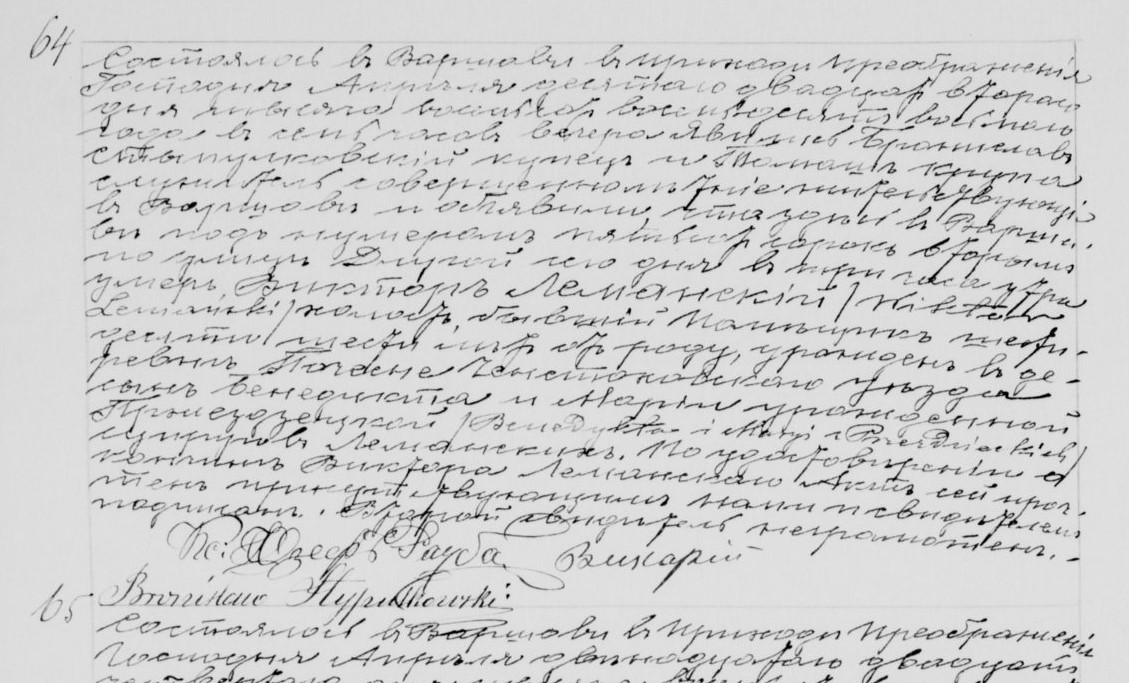 64
Состоялось въ Варшавѣ въ приходѣ Преображенія
Господня Апрѣля десятаго двадцать втораго
дня тысяча восемьсотъ восемьдесятъ восьмаго
года въ семь часовъ вечера. Явились Брониславъ
Стыпулковскій купецъ и Томашъ Крупа
служитель совершеннолѣтніе жительствующіе
въ Варшавѣ и объявили, что въ Варша-
вѣ подъ нумеромъ пятьсотъ сорокъ вторымъ
по улицѣ Длугой сего дня въ три часа утра
умеръ Викторъ Леманскій /Wiktor
Lemański/ холостъ, бывшій помѣщикъ, шести-
десяти шести лѣтъ отъ роду, урожденъ въ де-
ревнѣ Почесне Ченстоховскаго уѣзда
сынъ Бенедикта и Маріи урожденной
/Benedykta i Maryi z Przezdzieckich/
супруговъ Леманскихъ. По удостовѣреніи о
кончинѣ Виктора Леманскаго Актъ сей проч-
тенъ присутствующимъ нами и свидѣтелемъ
подписанъ. Второй свидѣтель неграмотенъ. -
Кс: Юзефъ Викарій
Bronisław Stypułkowski
65
Состоялось въ Варшавѣ въ приходѣ Преображенія
Господня Апрѣля двѣнадцатаго двадцать